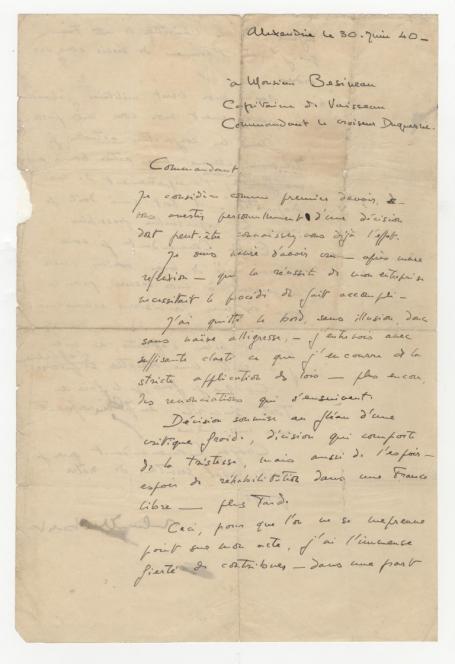 Alexandrie le 30. Juin 40 -
à Monsieur Besineau
Capitaine de Vaisseau
Commandant le croiseur Duquesne.
Commandant
Je considère comme premier devoir, de
vous avertir personnellement d'une décision
dont peut-être connaissez vous déjà l'effet.
Je suis navré d'avoir cru - après mûre
reflexion - que la réussite de mon entreprise
necessitait le procédé de fait accompli -
J'ai quitté le bord, sans illusion, donc
sans naïve allégresse, - j'entrevois avec
suffisante clarté ce que j'encoure de la
stricte application des lois - plus encore,
des renonciations qui s'ensuivent.
Décision soumise au fléau d'une
critique froide, décision qui comporte
de la tristesse, mais aussi de l'espoir -
espoir de réhabilitation dans une France
libre - plus tard.
Ceci, pour que l'on ne se meprenne
point sur mon acte, j'ai l'immense
fierté de contribuer - dans une part